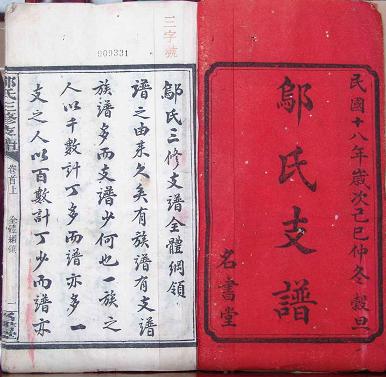 民國十八年歲次己巳仲冬穀旦
鄔氏支譜
名書堂
三字號
909331
鄔氏三修支譜全體綱領
譜之由來久矣有族譜有支譜
族譜多而支譜少何也一族之
人以千數計丁多而譜亦多一
支之人以百數計丁少而譜亦
鄔氏三修支譜
卷首上
全體綱領
一
名書堂